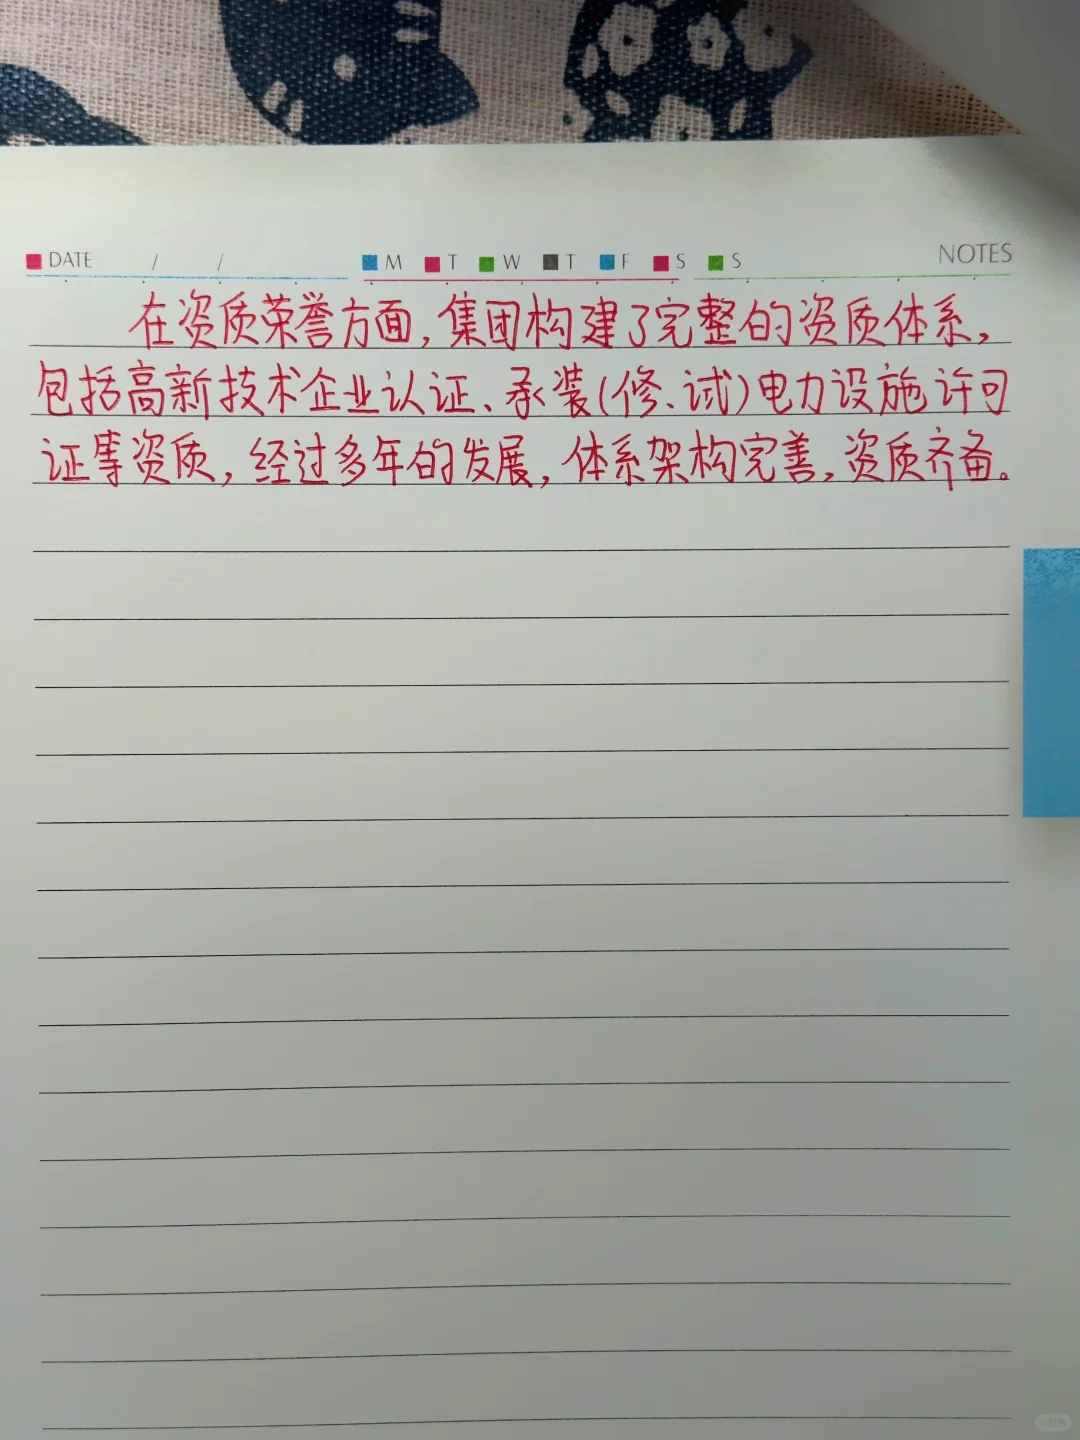 DATE / / M T W T F S S NOTES
在资质荣誉方面,集团构建了完整的资质体系,
包括高新技术企业认证、承装(修、试)电力设施许可
证等资质,经过多年的发展,体系架构完善,资质齐备。